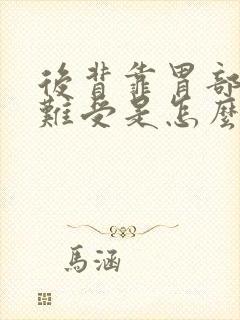 後背靠胃部
難受是怎麼
馬涵